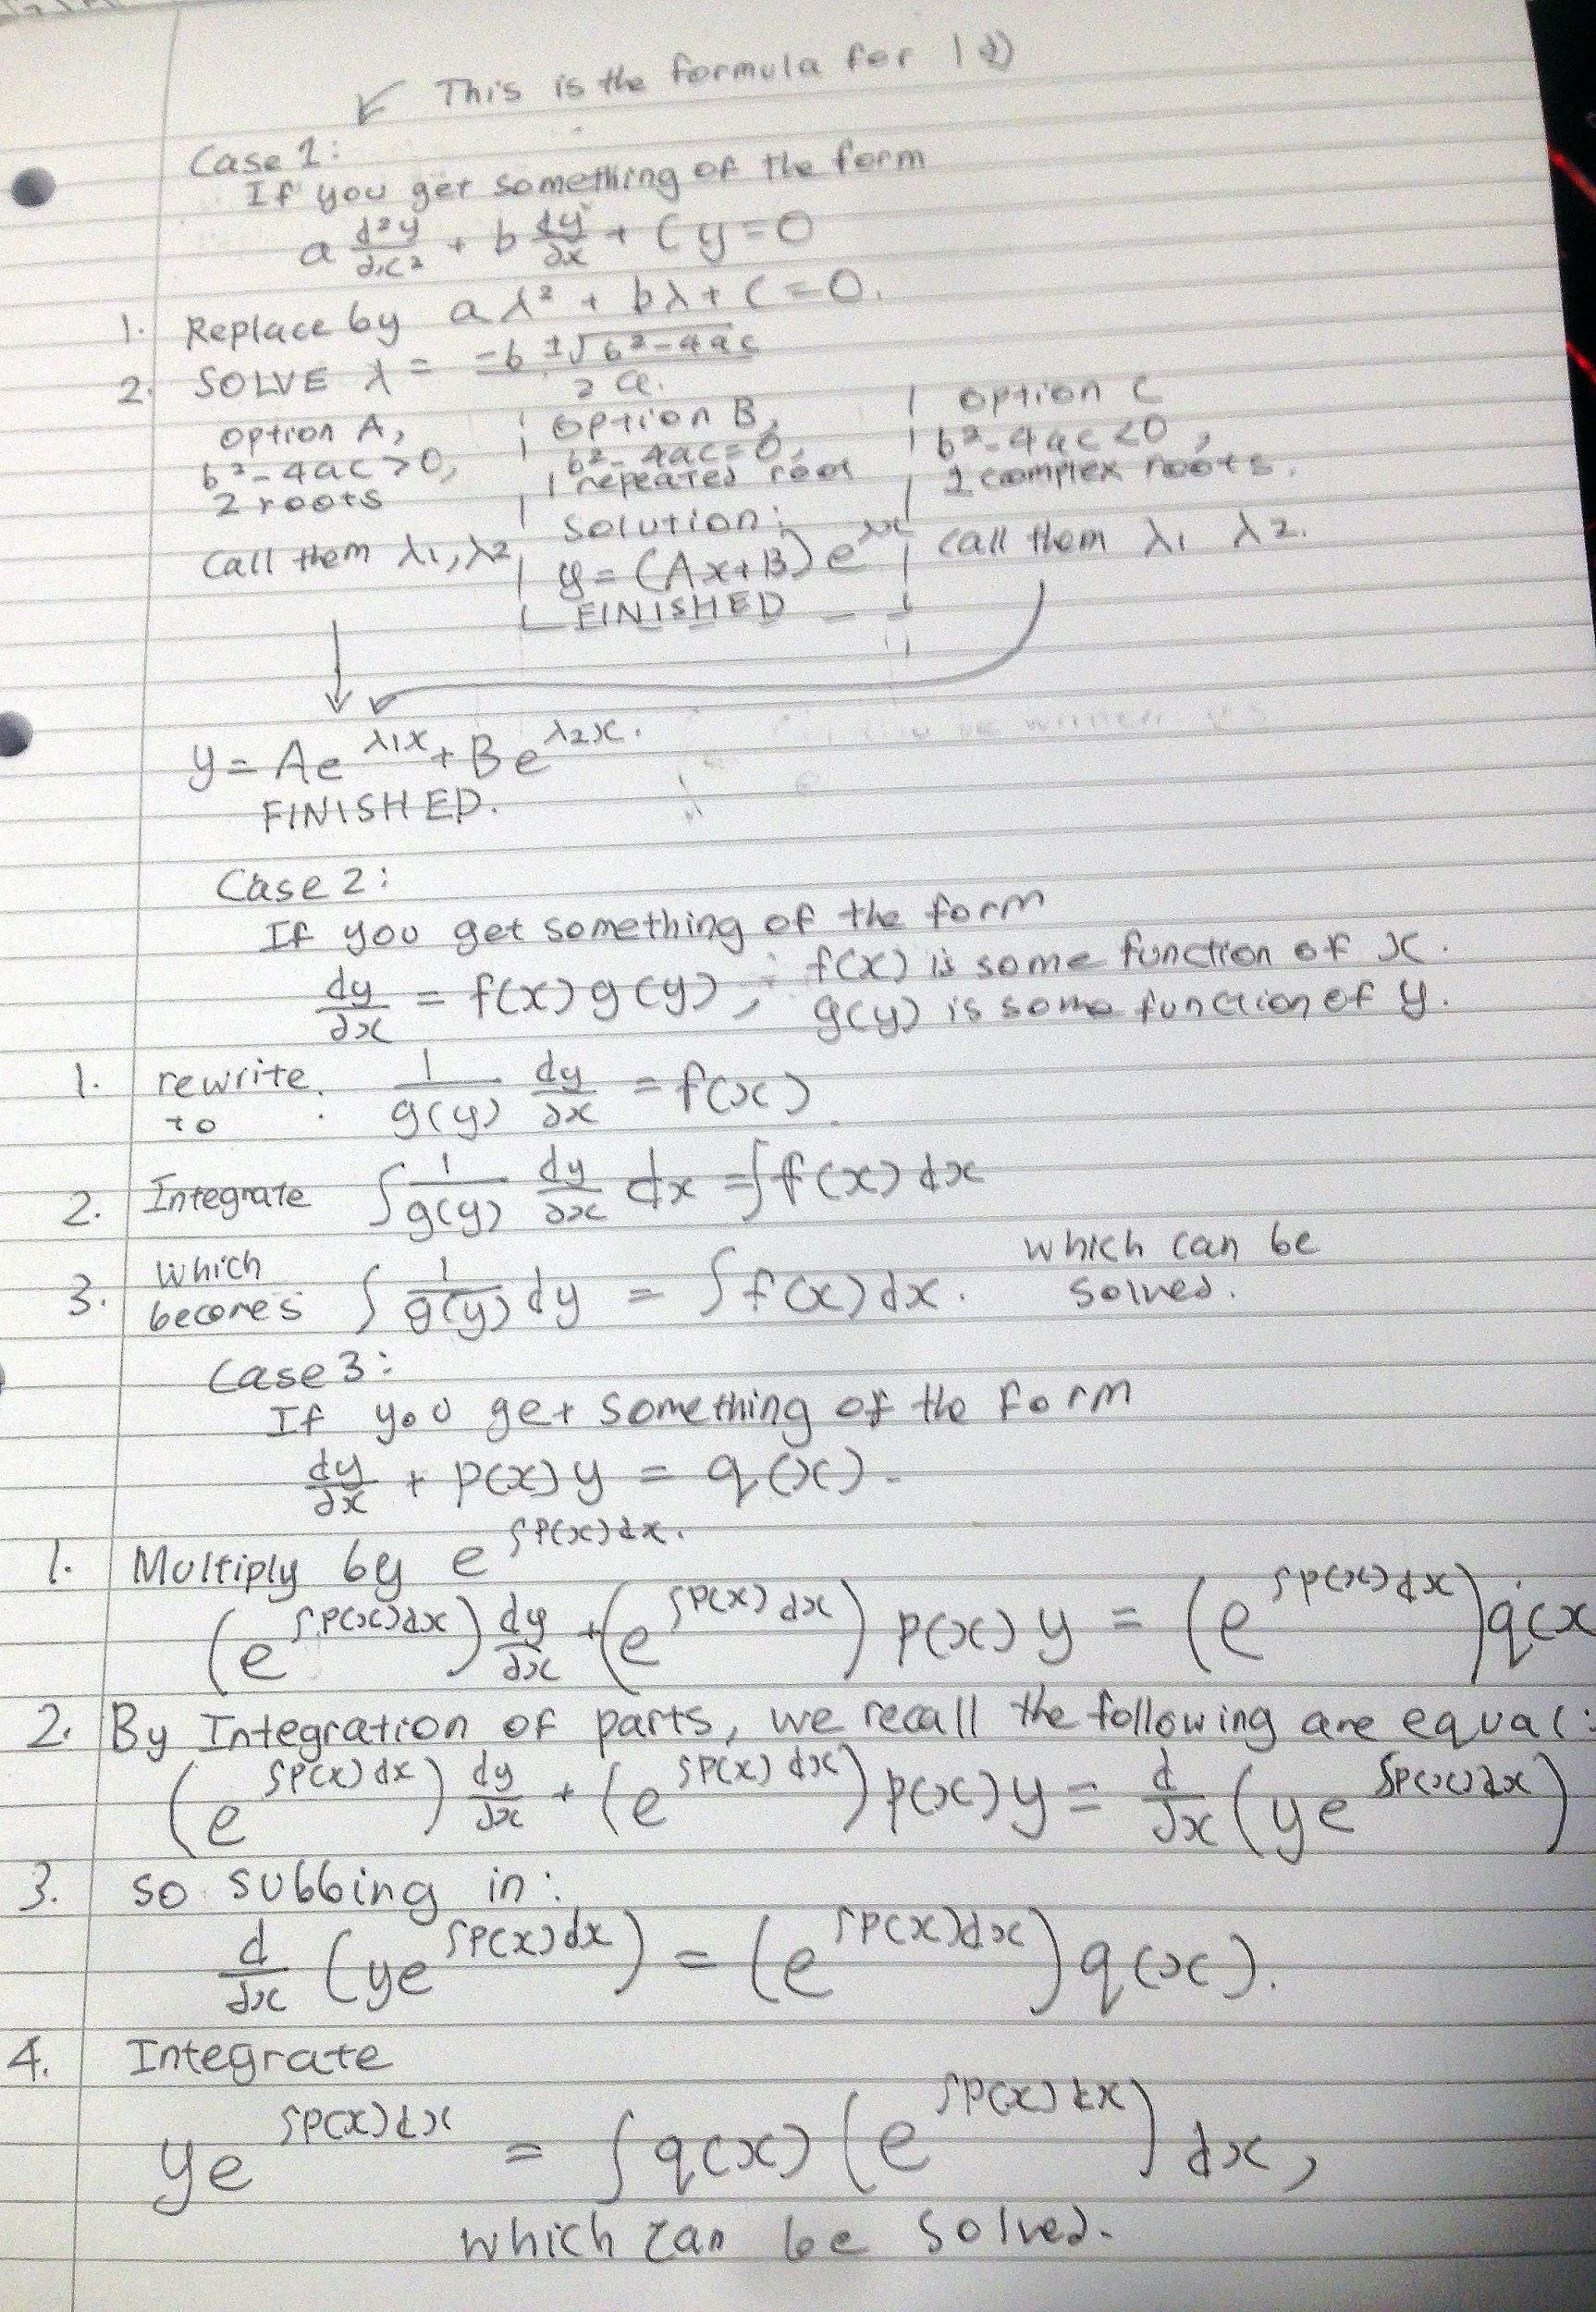 This is the formula for 1d)
Case 1:
If you get something of the form
a d²y/dx² + b dy/dx + Cy = 0
1. Replace by aλ² + bλ + C = 0.
2. SOLVE λ = -b ± √b²-4ac / 2a.
Option A, Option B, Option C
b²-4ac>0, b²-4ac=0, b²-4ac<0,
2 roots 1 repeated root 2 complex roots.
Solution:
Call them λ1, λ2 y = (Ax+B)e^λx Call them λ1 λ2.
FINISHED
y = Ae^λ1x + Be^λ2x.
FINISHED.
Case 2:
If you get something of the form
dy/dx = f(x)g(y), f(x) is some function of x.
g(y) is some function of y.
1. rewrite to : 1/g(y) dy/dx = f(x)
2. Integrate ∫ 1/g(y) dy/dx dx = ∫f(x)dx
3. which becomes ∫ 1/g(y) dy = ∫f(x)dx. which can be solved.
Case 3:
If you get something of the form
dy/dx + p(x)y = q(x).
1. Multiply by e^∫p(x)dx.
(e^∫p(x)dx) dy/dx + (e^∫p(x)dx) p(x)y = (e^∫p(x)dx) q(x
2. By Integration of parts, we recall the following are equal:
(e^∫p(x)dx) dy/dx + (e^∫p(x)dx) p(x)y = d/dx (ye^∫p(x)dx)
3. so subbing in:
d/dx (ye^∫p(x)dx) = (e^∫p(x)dx) q(x).
4. Integrate
ye^∫p(x)dx = ∫q(x)(e^∫p(x)dx) dx,
which can be solved.